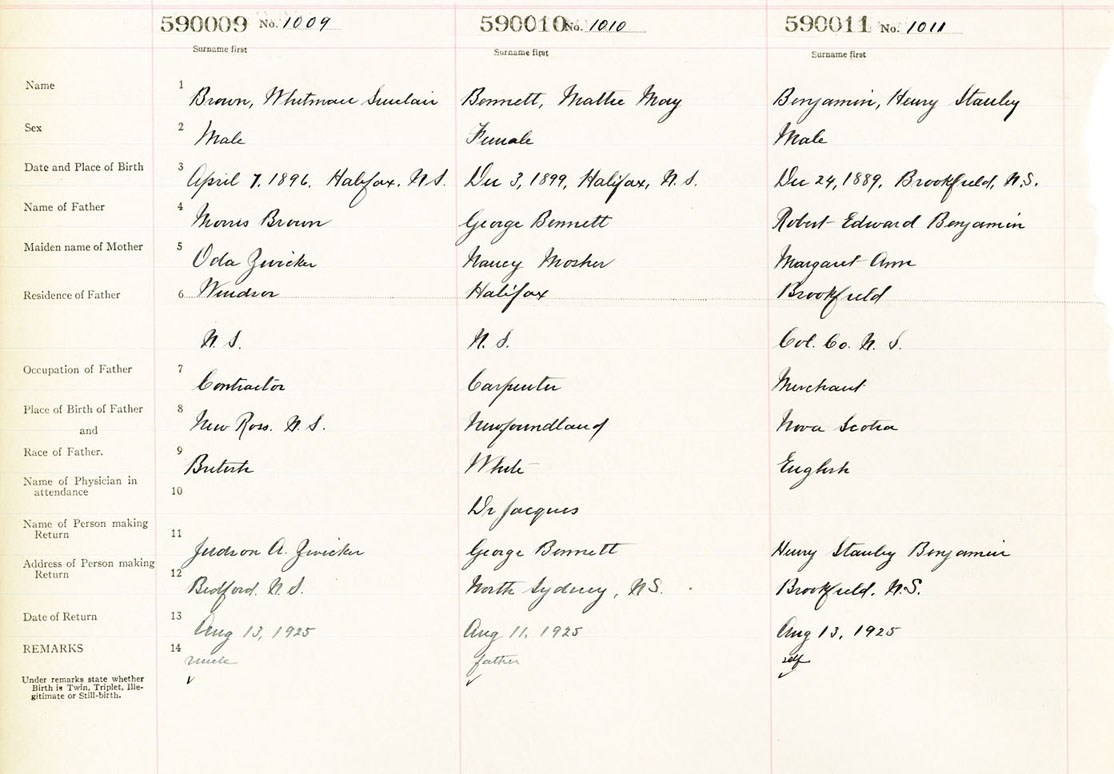 590009 No. 1009 590010 No. 1010 590011 No. 1011
Surname first Surname first Surname first
Name 1 Brown, Whitman Sinclair Bennett, Mattie May Benjamin, Henry Stanley
Sex 2 Male Female Male
Date and Place of Birth 3 April 7, 1896, Halifax, N.S. Dec 3, 1899, Halifax, N.S. Dec 24, 1889, Brookfield, N.S.
Name of Father 4 Morris Brown George Bennett Robert Edward Benjamin
Maiden name of Mother 5 Oda Zwicker Nancy Mosher Margaret Ann
Residence of Father 6 Windsor Halifax Brookfield
N.S. N.S. Col. Co. N.S.
Occupation of Father 7 Contractor Carpenter Merchant
Place of Birth of Father 8 New Ross. N.S. Newfoundland Nova Scotia
and
Race of Father. 9 British White English
Name of Physician in
attendance 10 Dr Jacques
Name of Person making
Return 11 Judson A. Zwicker George Bennett Henry Stanley Benjamin
Address of Person making
Return 12 Bedford. N.S. North Sydney, N.S. Brookfield, N.S.
Date of Return 13 Aug 13, 1925 Aug 11, 1925 Aug 13, 1925
REMARKS 14 uncle father self
Under remarks state whether
Birth is Twin, Triplet, Ille-
gitimate or Still-birth.